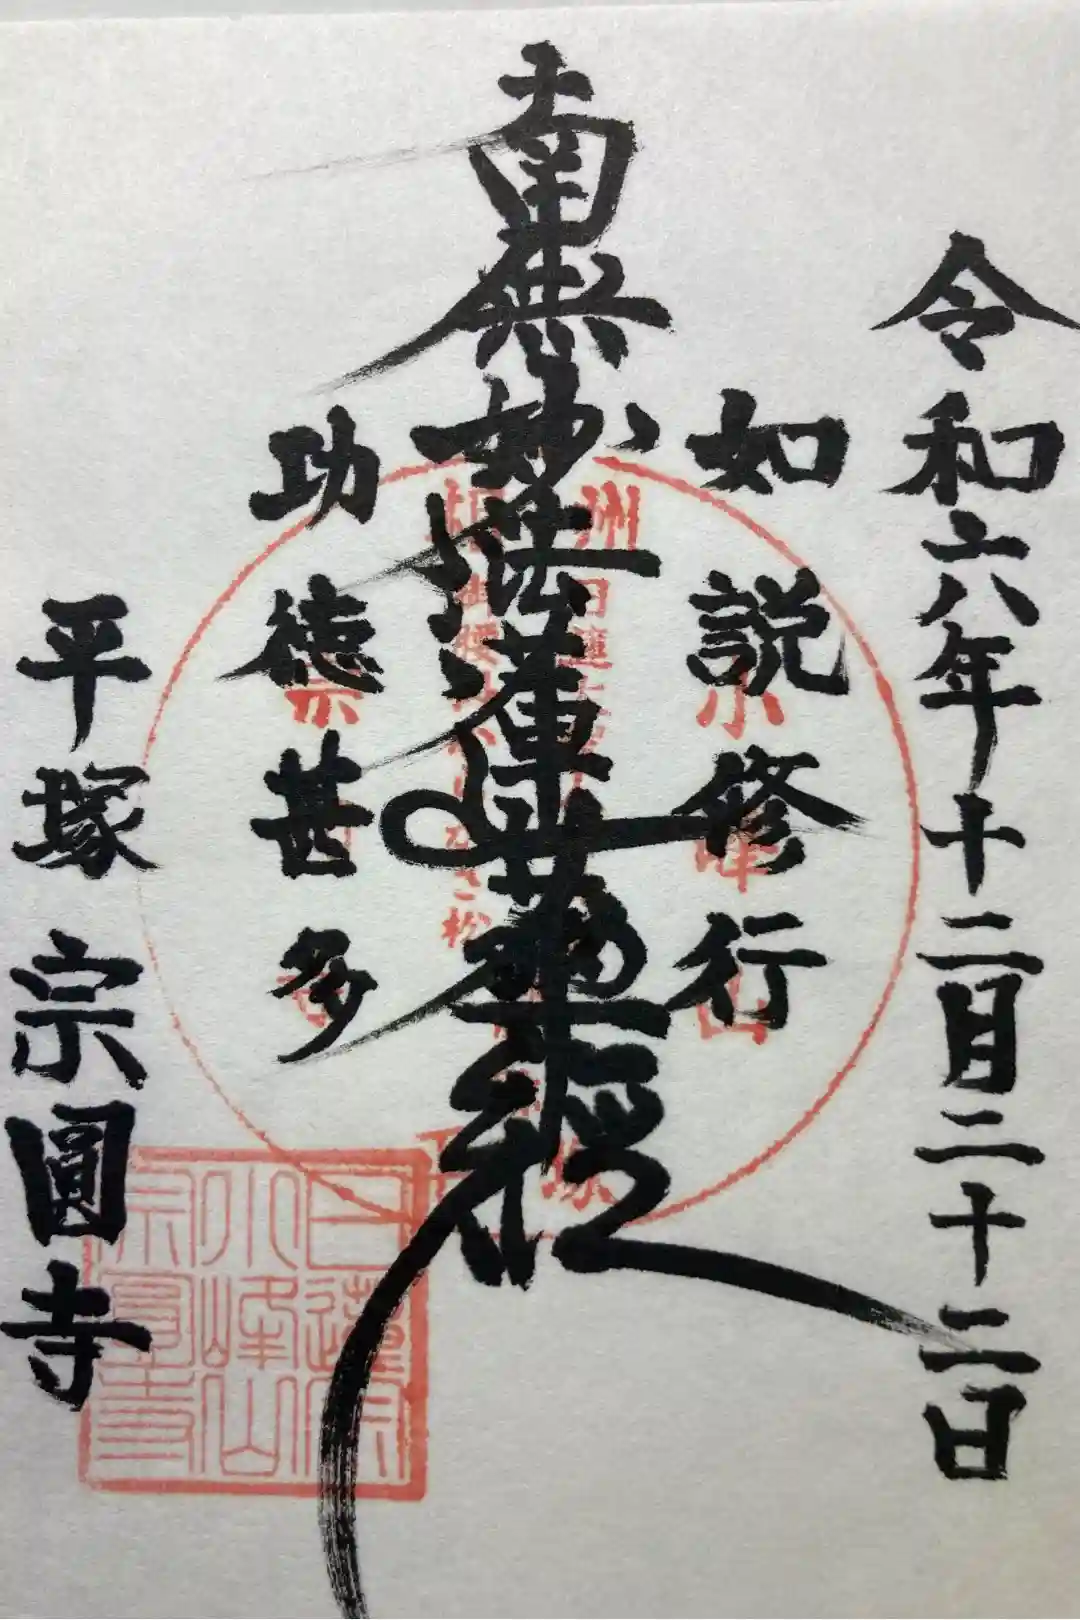 令和六年十二月二十二日
如説修行
南無妙法蓮華経
功徳甚多
平塚 宗圓寺
日蓮宗
小峰山
宗圓寺